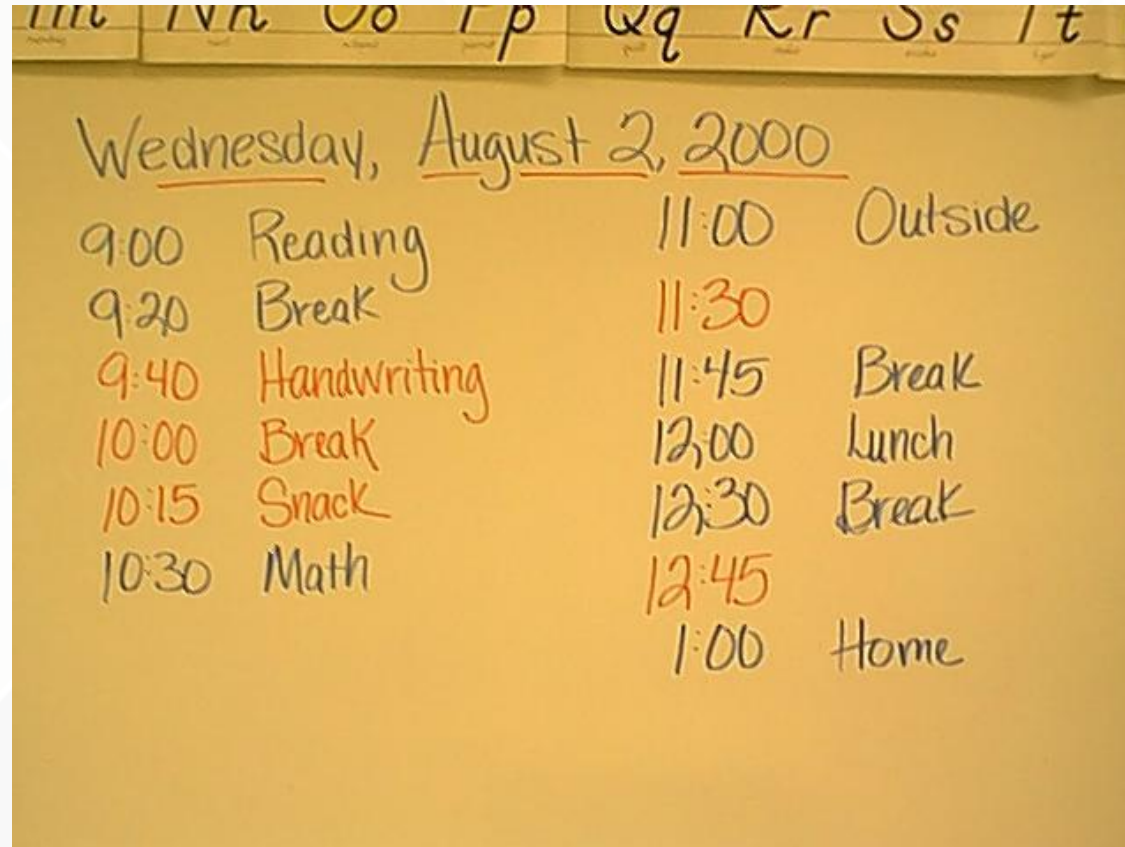 Nn Oo Pp Qq Rr Ss Tt
Wednesday, August 2, 2000
9:00 Reading
9:20 Break
9:40 Handwriting
10:00 Break
10:15 Snack
10:30 Math
11:00 Outside
11:30
11:45 Break
12:00 Lunch
12:30 Break
12:45
1:00 Home